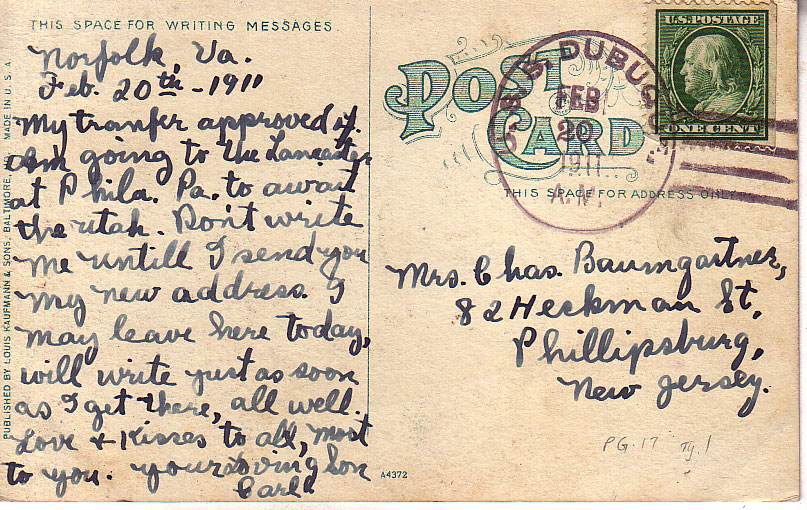 THIS SPACE FOR WRITING MESSAGES.
Norfolk, Va.
Feb. 20th - 1911
My tranfer approved of.
Am going to the Lancaster
at Phila. Pa. to await
the Utah. Don't write
me untill I send you
my new address. I
may leave here today,
will write just as soon
as I get there, all well.
Love + Kisses to all, most
to you. your loving Son
Carl.
PUBLISHED BY LOUIS KAUFMANN & SONS, BALTIMORE, MD. MADE IN U.S.A.
POST CARD
THIS SPACE FOR ADDRESS ONLY
U.S. POSTAGE
ONE CENT
DUBUQUE
FEB
20
1911
A.M.
Mrs. Chas. Baumgartner,
82 Heckman St,
Phillipsburg,
New Jersey.
PG-17 Ty.1
A4372